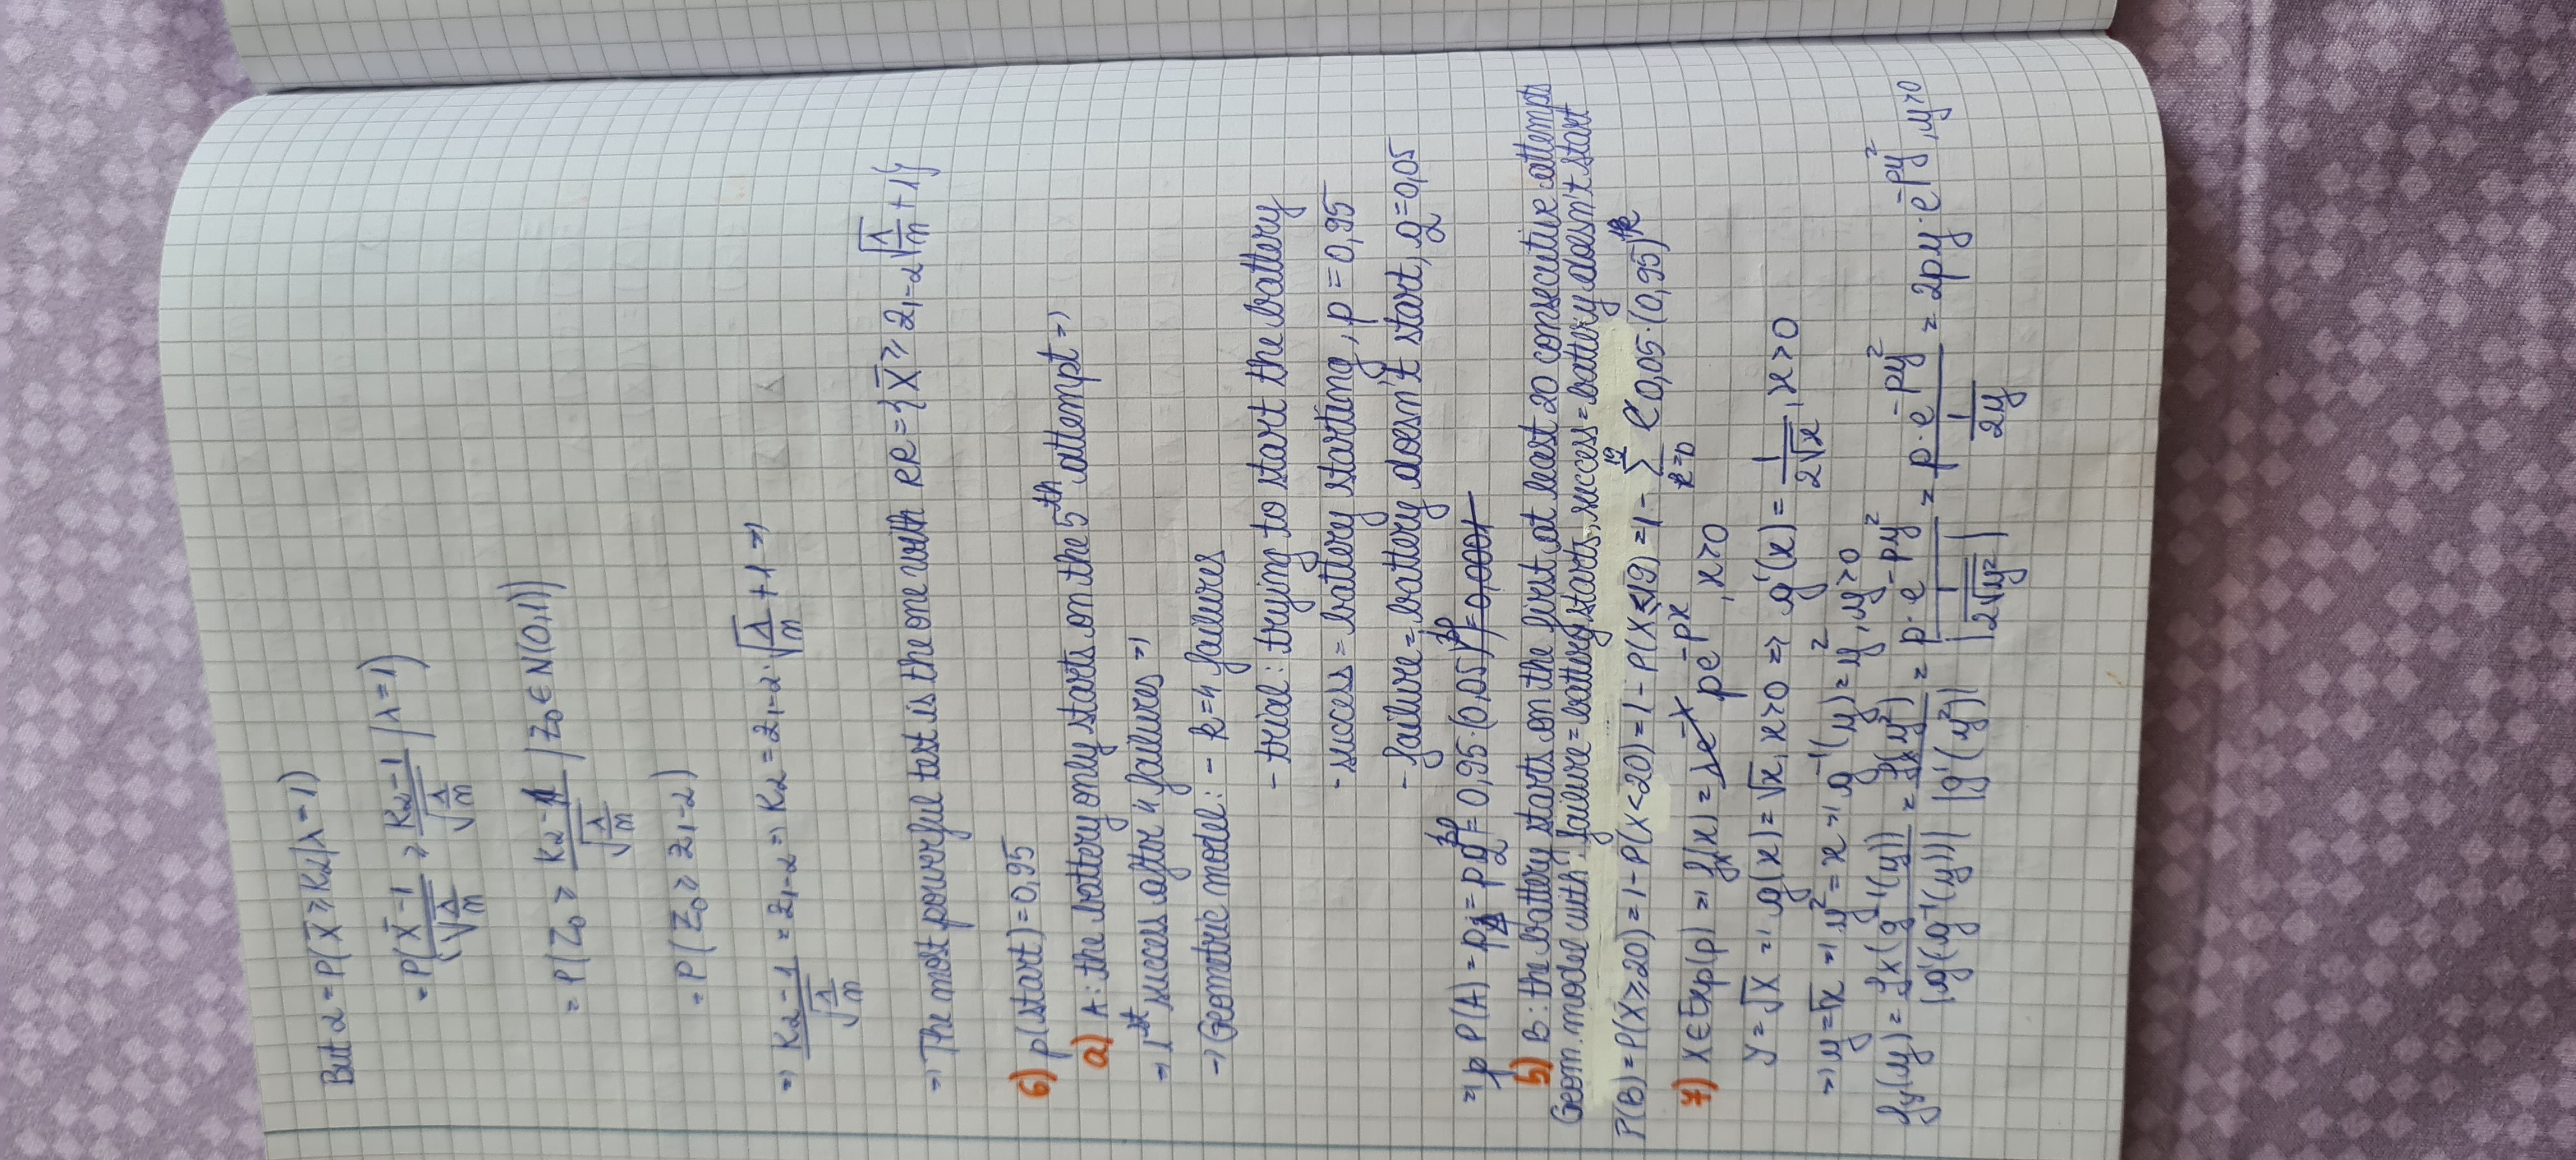 But α = P(X̄ ≥ Kα | λ = 1)
= P( (X̄ - 1)/√(λ/n) ≥ (Kα - 1)/√(λ/n) | λ = 1)
= P(Z₀ ≥ (Kα - 1)/√(λ/n) | Z₀ ∈ N(0,1))
= P(Z₀ ≥ z₁₋α)
=> (Kα - 1)/√(λ/n) = z₁₋α => Kα = z₁₋α · √(λ/n) + 1 =>
=> The most powerful test is the one with RR = {X̄ ≥ z₁₋α √(λ/n) + 1}
6) p(start) = 0,95
a) A: the battery only starts on the 5th attempt =>
=> 1st success after 4 failures =>
=> Geometric model: - k = 4 failures
- trial: trying to start the battery
- success = battery starting, p = 0,95
- failure = battery doesn't start, q = 0,05
=> P(A) = p₄ = pq⁴ = 0,95·(0,05)⁴ = 0,0001
b) B: the battery starts on the first at least 20 consecutive attempts
Geom. model with: failure = battery starts, success = battery doesn't start
P(B) = P(X ≥ 20) = 1 - P(X < 20) = 1 - P(X ≤ 19) = 1 - Σ_{k=0}^{19} 0,05·(0,95)^k
7) X ∈ Exp(p) => f_X(x) = λe^{-x} pe^{-px}, x > 0
Y = √X => g(x) = √x, x > 0 => g'(x) = 1/(2√x), x > 0
=> y = √x => y² = x => g⁻¹(y) = y², y > 0
f_Y(y) = f_X(g⁻¹(y))/|g'(g⁻¹(y))| = f_X(y²)/|g'(y²)| = p·e^{-py²}/|1/(2√y²)| = p·e^{-py²}/(1/(2y)) = 2py·e^{-py²}, y > 0